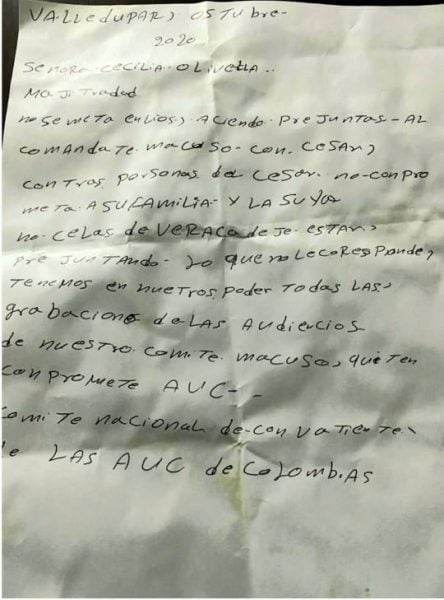 VALLEDUPAR, OSTubre-
2020
SeñORA-CeCiLiA-OLiVeLLA..
MAJiTRADAD
no SemeTA enLiOS, ACiendo-PreJuntAS-AL
COMANDATE. MACUSO-CON. CESAR,
CONTRAS PORSONAS del CeSAr. no-conpro
meTA. A SU FAMiLiA- Y LA SUYA
no-CeLAS de VERACA de Je-eSTAR,
Pre JUNTANDO- Lo que no Le CoReSPonde,
Tenemos en nueTroS, Poder ToDAS LAS,
grabacioneS de LAS AudienCioS
de nueSTro. Comi Te. MACUSO, que Ten
Con PromeTe AUC--
ComiTe nacionaL de-conVATienTe,
e LAS AUC de CoLomb.AS